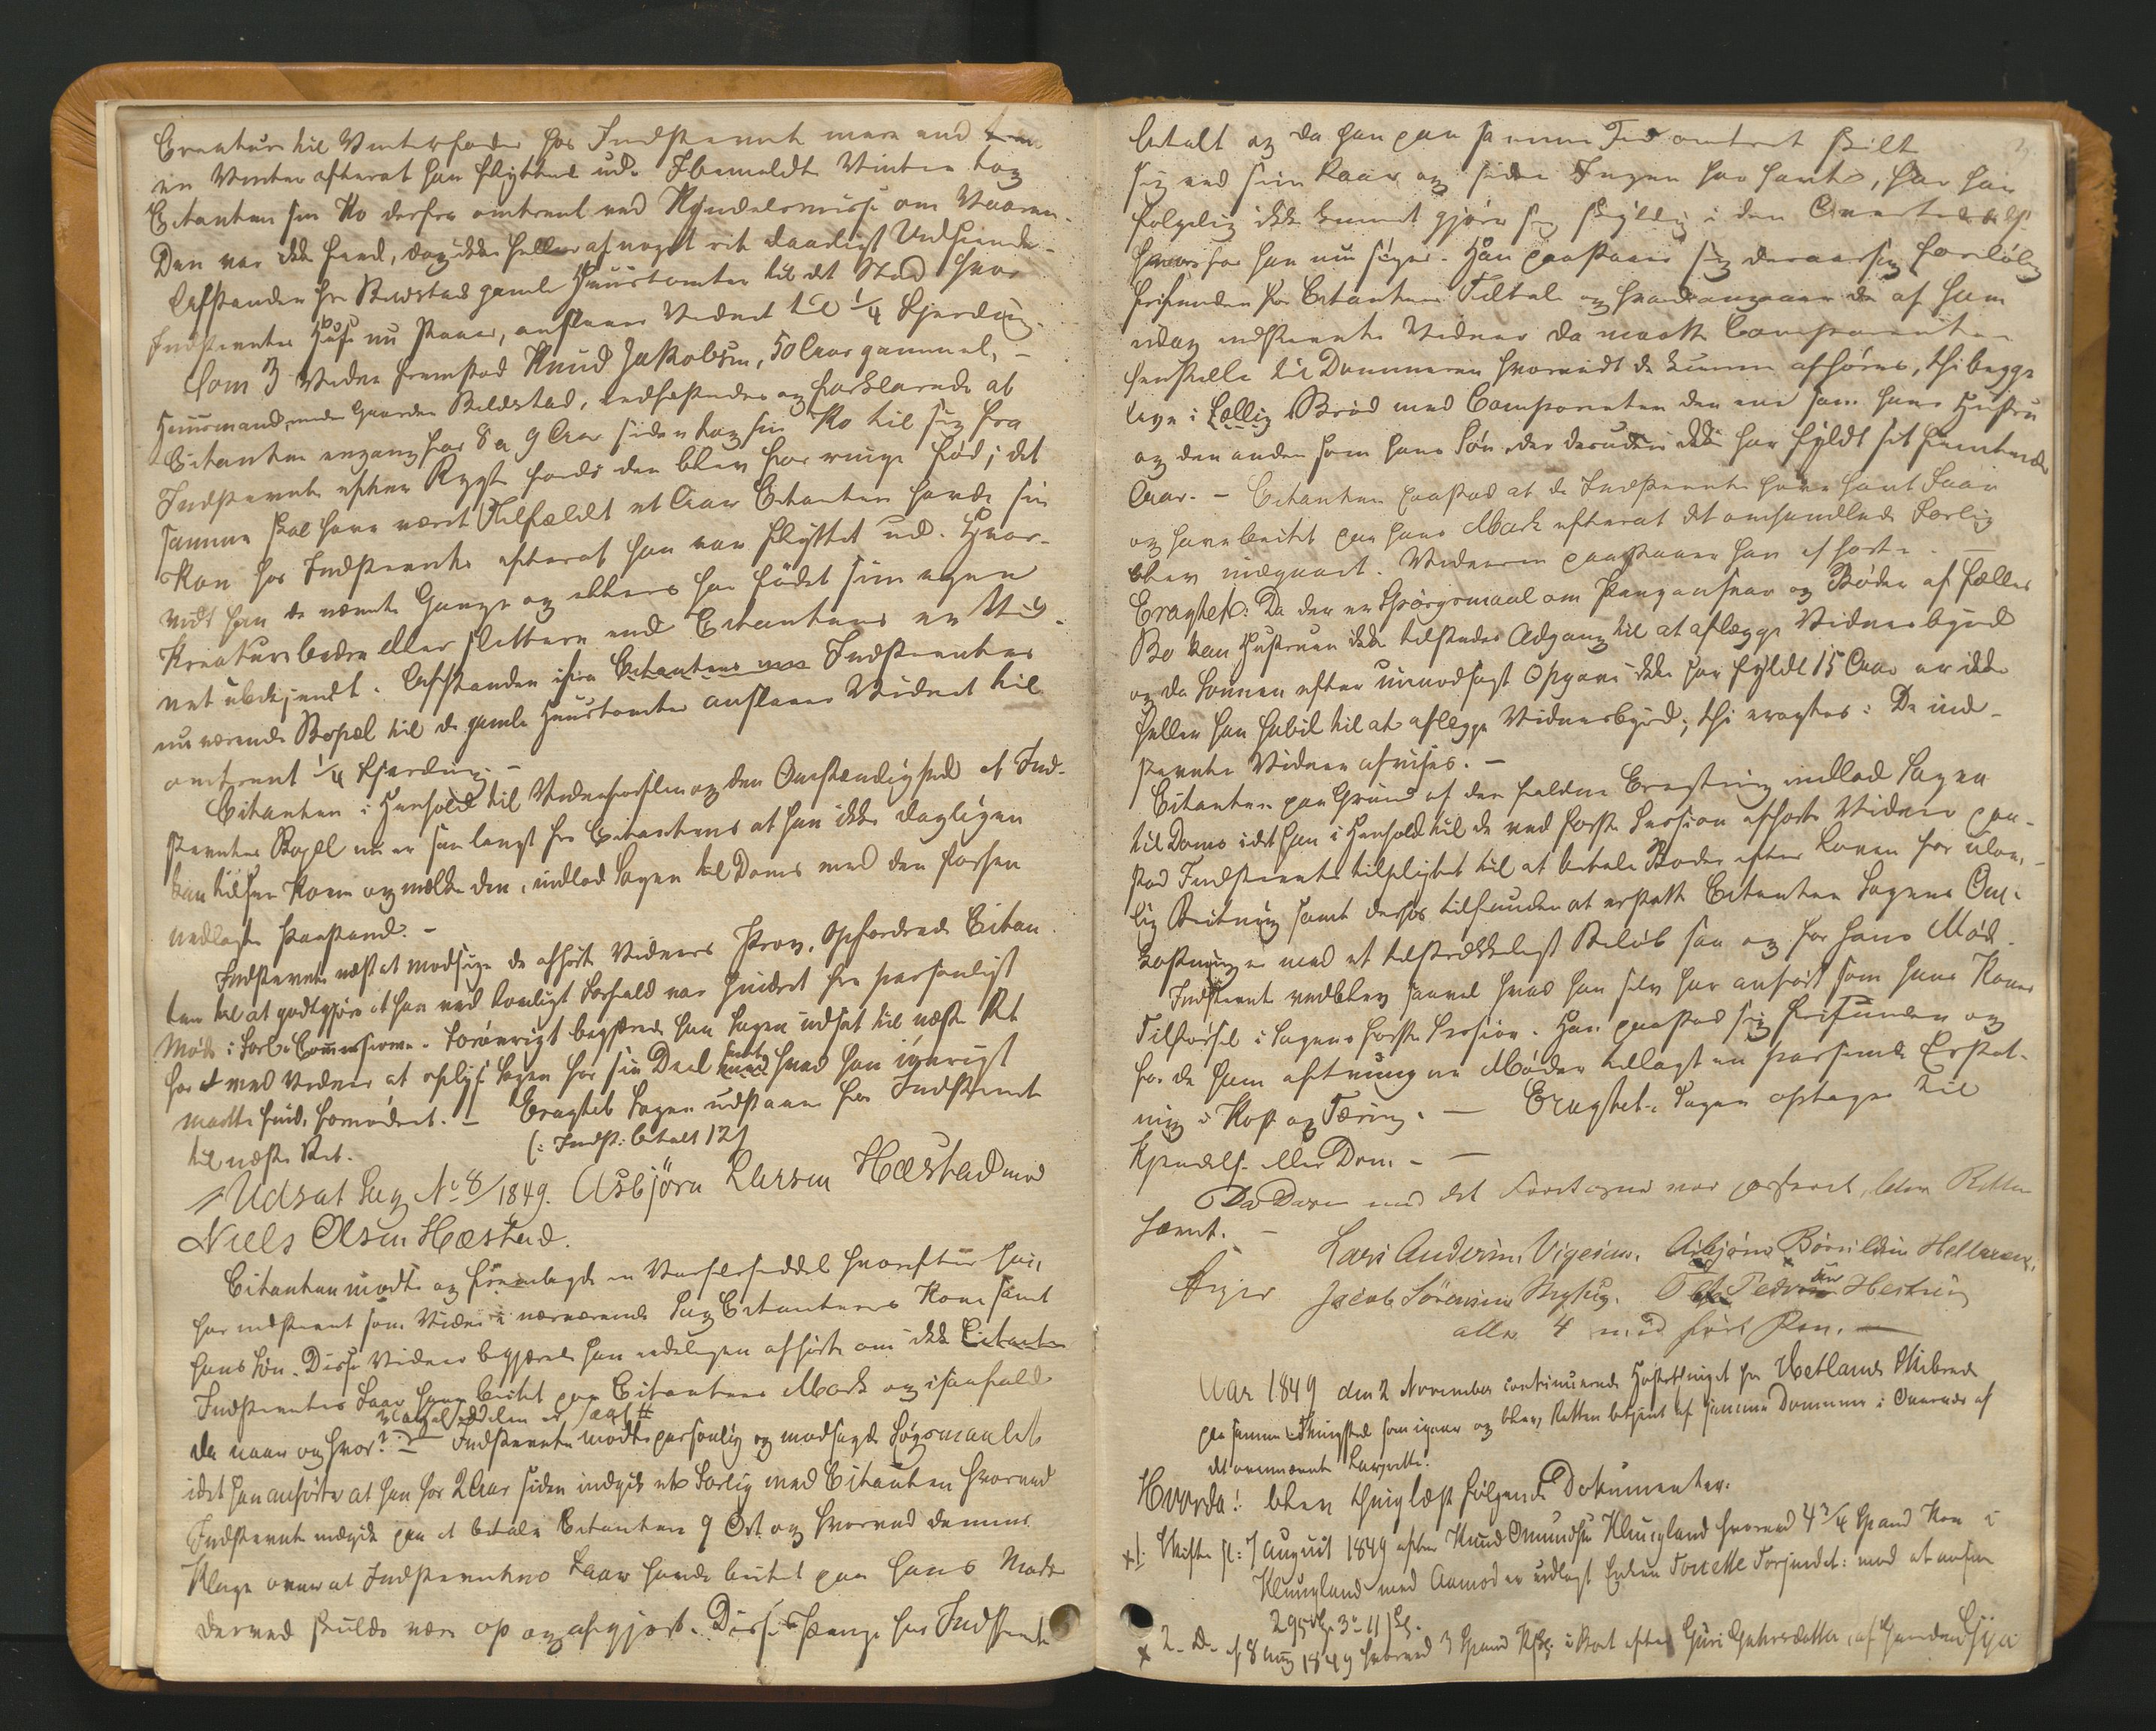 Creature til Vinterfoder hos Indstevnte mere end
en Vinter efterat han flyttede ud. Ibemeldte Vinter tog
Citanten sin Ko derfra omtrent ved Kyndelsmisse om Vaaren.
Den var ikke feed, dog ikke heller af noget ret daarligt Udseende.
Afstanden fra Birdstad gamle Huustomter til det Sted hvor
Indstevntes Huse nu staaer, ansaaer Vidnet til 1/4 Fjerding.
Som 3 Vidne fremstod Knud Jakobsen, 50 Aar gammel,
Huusmand under Gaarden Birdstad, edfæstedes og forklarede at
Citanten engang for 8 a 9 Aar siden tog sin Ko til sig fra
Indstevnte efter Rygte fordi den blev for ringe fød; det
samme skal have været Tilfældet et Aar Citanten havde sin
Ko hos Indstevnte efterat han var flyttet ud. Hvor-
vidt han de nævnte Gange og ellers har fødet sine egne
Kreature bedre eller slettere end Citantens er Vid-
net ubekjendt. Afstanden ifra Citantens Indstevntes
nuværende Bopæl til de gamle Huustomter ansaaer Vidnet til
omtrent 1/4 Fjerding. –
Citanten i Henhold til Vidneførslen og den Omstændighed at Ind-
stevntes Bopæl nu er saa langt fra Citantens at han ikke dagligen
kan tilsee Koen og melke den, indlod Sagen til Doms med den forhen
nedlagte Paastand. –
Indstevnte næst at modsige de afhørte Vidners Prov, opfordrede Citan
ten til at godtgjøre at han ved lovligt Forfald var hindret fra personligt
Møde i Forl. Commissionen. Forøvrigt begjærede han Sagen udsat til næste Ret
for at med Vidner at oplyse Sagen for sin Deel samt hvad han iøvrigt
maatte finde fornødent. – Eragtet: Sagen udstaaer for Indstevnte
til næste Ret. (: Indst: betalt 12 ſ
Udsat Sag No 8/1849. Asbjørn Larsen Hæstad mod
Niels Olsen Hæstad.
Citanten mødte og fremlagde en Varselseddel hvorefter han
har indstevnt som Vidner i nærværende Sag Citantens Kone samt
hans Søn. Disse Vidner begjærede han edeligen afhørte om ikke Citanten
Indstevntes Faar have beitet paa Citantens Mark og isaafald
da naar og hvor? – Indstevnte mødte personlig og modsagde Søgsmaalet
idet han anførte at han for 2 Aar siden indgik et Forlig med Citanten hvorved
Indstevnte indgik paa at betale Citanten 9 Ort og hvorved dennes
Klage over at Indstevntens Faar havde beitet paa hans Mark
derved skulde være op og afgjort. Disse Penge har Indstevnte
betalt og da han paa samme Tid omtrent skilte
sig ved sine Faar og siden Ingen har havt, har han
følgelig ikke kunnet gjøre sig skyldig i den Overtrædelse
hvorfor han nu søges. Han paastaaer sig derfor foreløbig
frifunden for Citantens Tiltale og hvad angaaer de af ham
idag indstevnte Vidner da maatte Comparenten
henstille til Dommeren hvorvidt de kunne afhøres, thi begge
leve i fællig Brød med Comparenten den ene som hans Hustru
og den anden som hans Søn der desuden ikke har fyldt sit femtende
Aar. – Citanten paastod at de Indstevnte have havt Faar
og have beitet paa hans Mark efterat det omhandlede Forlig
blev indgaaet. Vidnerne paastaaer han afhørte. –
Eragtet: Da der er Spørgsmaal om Pengeansvar og Bøder af fælles
Bo kan Hustruen ikke tilstedes Adgang til at aflægge Vidnesbyrd
og da Sønnen efter uimodsagt Opgave ikke har fyldt 15 Aar er ikke
heller han habil til at aflægge Vidnesbyrd; thi eragtes: De ind-
stevnte Vidner afvises. –
Citanten paa Grund af den faldne Eragtning indlod Sagen
til Doms idet han i Henhold til de ved første Session afhørte Vidner paa-
stod Indstevnte tilpligtet til at betale Bøder efter Loven for ulov-
lig Beitning samt derhos tilfunden at erstatte Citanten Sagens Om-
kostninger med et tilstrækkeligt Beløb saa og for hans Møde.
Indstevnte vedblev saavel hvad han selv har anført som hans Kones
Tilførsel i Sagens første Session. Han paastod sig frifunden og
for de ham aftvungne Møder tillagt en passende Erstat-
ning i Kost og Tæring. – Eragtet: Sagen optages til
Kjendelse eller Dom. –
Da Dagen med det Foretagne var passeret, blev Retten
hævet. –
Lars Andersen Vigesaa. Asbjørn Bårdsen Helleren,
Jacob Sørensen Pedersen
alle 4 med ført Pen. –
Aar 1849 den 2 November continuerede Høstthinget for Hetlands Skibrede
paa samme Thingsted som igaar og blev Retten betjent af samme Dommer i Overvær af
det ovennævnte Laugrette.
Hvorda! blev thinglæst følgende Dokumenter.
x1: Skifte sl: 7 August 1849 efter Knud Omundsen Klungland hvorved 4 3/4 Spand Korn i
Klungland med Aamod er udlagt Enken mod at
295 3 11 ſ.
x 2. do af 8 Aug 1849 hvorved 3 Spand i Boet efter Guri